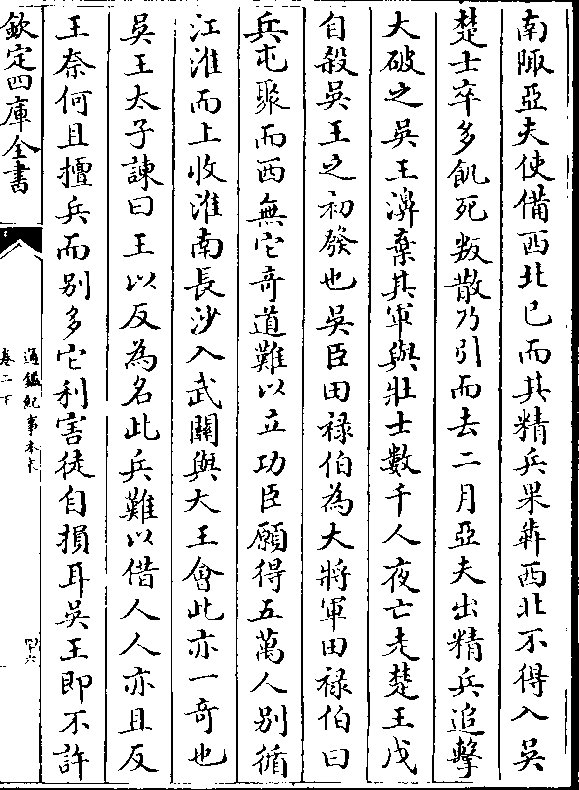 南陬亞夫使備西北已而其精兵果犇西北不得入吳
楚士卒多飢死叛散乃引而去二月亞夫出精兵追擊
大破之吳王濞棄其軍與壯士數千人夜亡走楚王戊
自殺吳王之初發也吳臣田祿伯為大將軍田祿伯曰
兵屯聚而西無它奇道難以立功臣願得五萬人別循
江淮而上收淮南長沙入武關與大王會此亦一奇也
吳王太子諫曰王以反為名此兵難以借人人亦且反
王奈何且擅兵而別多它利害徒自損耳吳王即不許
欽定四庫全書
通鑑紀事本末
卷二下
四六